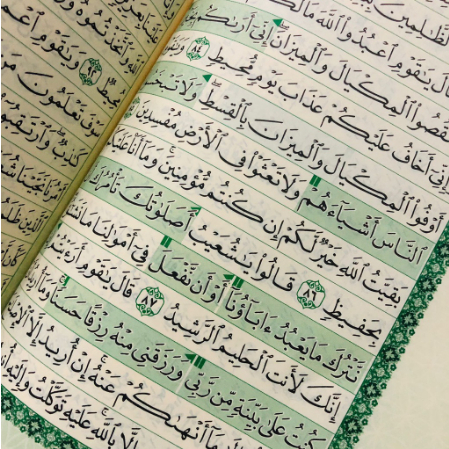 ٱلظَّٰلِمِينَ
قَالَ يَٰقَوْمِ ٱعْبُدُوا۟ ٱللَّهَ مَا لَكُم
نقُصُوا۟ ٱلْمِكْيَالَ وَٱلْمِيزَانَ إِنِّىٓ أَرَىٰكُم
وَإِنِّىٓ أَخَافُ عَلَيْكُمْ عَذَابَ يَوْمٍ مُّحِيطٍ ٨٤
أَوْفُوا۟ ٱلْمِكْيَالَ وَٱلْمِيزَانَ بِٱلْقِسْطِ وَلَا تَبْخَ
ٱلنَّاسَ أَشْيَآءَهُمْ وَلَا تَعْثَوْا۟ فِى ٱلْأَرْضِ مُفْسِدِينَ
بَقِيَّتُ ٱللَّهِ خَيْرٌ لَّكُمْ إِن كُنتُم مُّؤْمِنِينَ وَمَآ أَنَا۠ عَلَيْ
بِحَفِيظٍ ٨٦ قَالُوا۟ يَٰشُعَيْبُ أَصَلَوٰتُكَ تَأْمُرُكَ
نَّتْرُكَ مَا يَعْبُدُ ءَابَآؤُنَآ أَوْ أَن نَّفْعَلَ فِىٓ أَمْوَٰلِنَا مَا نَشَ
إِنَّكَ لَأَنتَ ٱلْحَلِيمُ ٱلرَّشِيدُ ٨٧ قَالَ يَٰقَوْمِ أَرَءَيْتُ
كُنتُ عَلَىٰ بَيِّنَةٍ مِّن رَّبِّى وَرَزَقَنِى مِنْهُ رِزْقًا حَسَنًا وَمَآ أُرِيدُ
مَآ أَنْهَىٰكُمْ عَنْهُ إِنْ أُرِيدُ إِلَّا ٱلْإِصْ
إِلَّا بِٱللَّهِ عَلَيْهِ تَوَكَّلْتُ وَإِلَيْهِ
وَيَٰقَوْمِ ٱعْمَ
سَوْفَ تَعْلَمُونَ مَن
كَٰذِبٌ وَٱرْتَقِبُ
أَمْرُنَا نَجَّيْنَا شُعَ
ٱلَّذِينَ ظَلَمُ